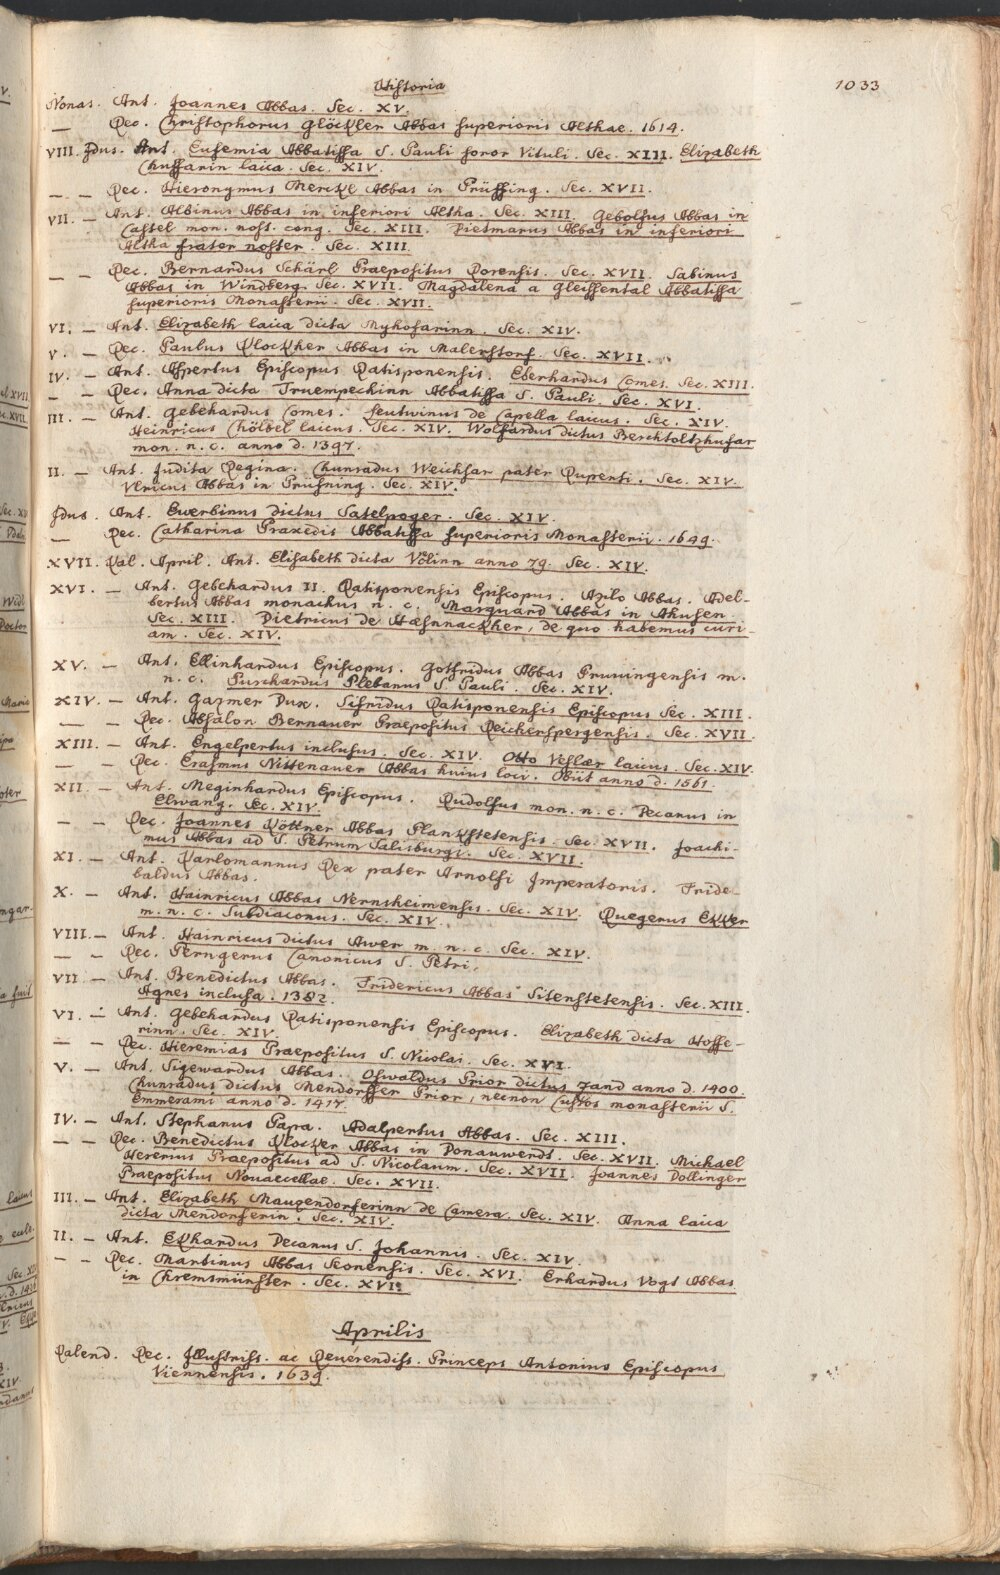 Historia
1033
Nonas. Ant. Joannes Abbas. Sec. XV.
— Rec. Christophorus Glöckler Abbas superioris Althae. 1614.
VIII. Idus. Ant. Eufemia Abbatissa S. Pauli soror Vituli. Sec. XIII. Elizabeth
Chussarin laica. Sec. XIV.
— — Rec. Hieronymus Merckl Abbas in Prüffing. Sec. XVII.
VII. — Ant. Albinus Abbas in inferiori Altha. Sec. XIII. Gebolfus Abbas in
Castel mon. nost. cong. Sec. XIII. Dietmarus Abbas in inferiori
Altha frater noster. Sec. XIII.
— — Rec. Bernardus Schärl Praepositus Rorensis. Sec. XVII. Sabinus
Abbas in Windberg. Sec. XVII. Magdalena a Gleissental Abbatissa
superioris Monasterii. Sec. XVII.
VI. — Ant. Elizabeth laica dicta Mykosarinn. Sec. XIV.
V. — Rec. Paulus Klockher Abbas in Malerstorf. Sec. XVII.
IV. — Ant. Aspertus Episcopus Ratisponensis. Eberhardus Comes. Sec. XIII.
— — Rec. Anna dicta Truempeckinn Abbatissa S. Pauli. Sec. XVI.
III. — Ant. Gebehardus Comes. Leutwinus de Capella laicus. Sec. XIV.
Heinricus Chölbel laicus. Sec. XIV. Wolfardus dictus Bercktoltzhusar
mon. n. c. anno d. 1397.
II. — Ant. Judita Regina. Chunradus Weichsar pater Ruperti. Sec. XIV.
Ulricus Abbas in Prüfning. Sec. XIV.
Idus. Ant. Ewerbinus dictus Satelpoger. Sec. XIV.
— Rec. Catharina Praxedis Abbatissa superioris Monasterii. 1649.
XVII. Kal. April. Ant. Elisabeth dicta Völinn anno 79. Sec. XIV.
XVI. — Ant. Gebehardus II. Ratisponensis Episcopus. Azilo Abbas. Adel-
bertus Abbas monachus n. c. Marquard Abbas in Ahusen
Sec. XIII. Dietricus de Haesnnackher, de quo habemus curi-
am. Sec. XIV.
XV. — Ant. Ellinhardus Episcopus. Gotfridus Abbas Pruningensis m.
n. c. Purchardus Plebanus S. Pauli. Sec. XIV.
XIV. — Ant. Gazmer Dux. Sifridus Ratisponensis Episcopus Sec. XIII.
— — Rec. Absalon Bernauer Praepositus Reicherspergensis. Sec. XVII.
XIII. — Ant. Engelpertus inclusus. Sec. XIV. Otto Vesslaer laicus. Sec. XIV.
— — Rec. Erasmus Nittenauer Abbas huius loci. Obiit anno d. 1561.
XII. — Ant. Meginhardus Episcopus. Rudolfus mon. n. c. Decanus in
Elwang. Sec. XIV.
— — Rec. Joannes Köttner Abbas Planckstetensis. Sec. XVII. Joachi-
mus Abbas ad S. Petrum Salisburgi. Sec. XVII.
XI. — Ant. Karlomannus Rex pater Arnolfi Imperatoris. Fride-
baldus Abbas.
X. — Ant. Hainricus Abbas Nernsheimensis. Sec. XIV. Ruegerus Ekker
m. n. c. Subdiaconus. Sec. XIV.
VIII. — Ant. Hainricus dictus Awer m. n. c. Sec. XIV.
— — Rec. Perngerus Canonicus S. Petri.
VII. — Ant. Benedictus Abbas. Fridericus Abbas Sitenstetensis. Sec. XIII.
Agnes inclusa. 1382.
VI. — Ant. Gebehardus Ratisponensis Episcopus. Elizabeth dicta Hoffe-
rinn. Sec. XIV.
— — Rec. Hieremias Praepositus S. Nicolai. Sec. XVI.
V. — Ant. Sigewardus Abbas. Oswaldus Prior dictus Zand anno d. 1400.
Chunradus dictus Mendorffer Prior, necnon Custos monasterii S.
Emmerami anno d. 1417.
IV. — Ant. Stephanus Papa. Adalpertus Abbas. Sec. XIII.
— — Rec. Benedictus Klocker Abbas in Donauwerdt. Sec. XVII. Michael
Herenius Praepositus ad S. Nicolaum. Sec. XVII. Joannes Dollinger
Praepositus Novaecellae. Sec. XVII.
III. — Ant. Elizabeth Mauzendorferinn de Camera. Sec. XIV. Anna laica
dicta Mendorferin. Sec. XIV.
II. — Ant. Ekhardus Decanus S. Johannis. Sec. XIV.
— — Rec. Martinus Abbas Seonensis. Sec. XVI. Erhardus Vogt Abbas
in Chremsmünster. Sec. XVI.
Aprilis
Kalend. Rec. Illustriss. ac Reverendiss. Princeps Antonius Episcopus
Viennensis. 1639.